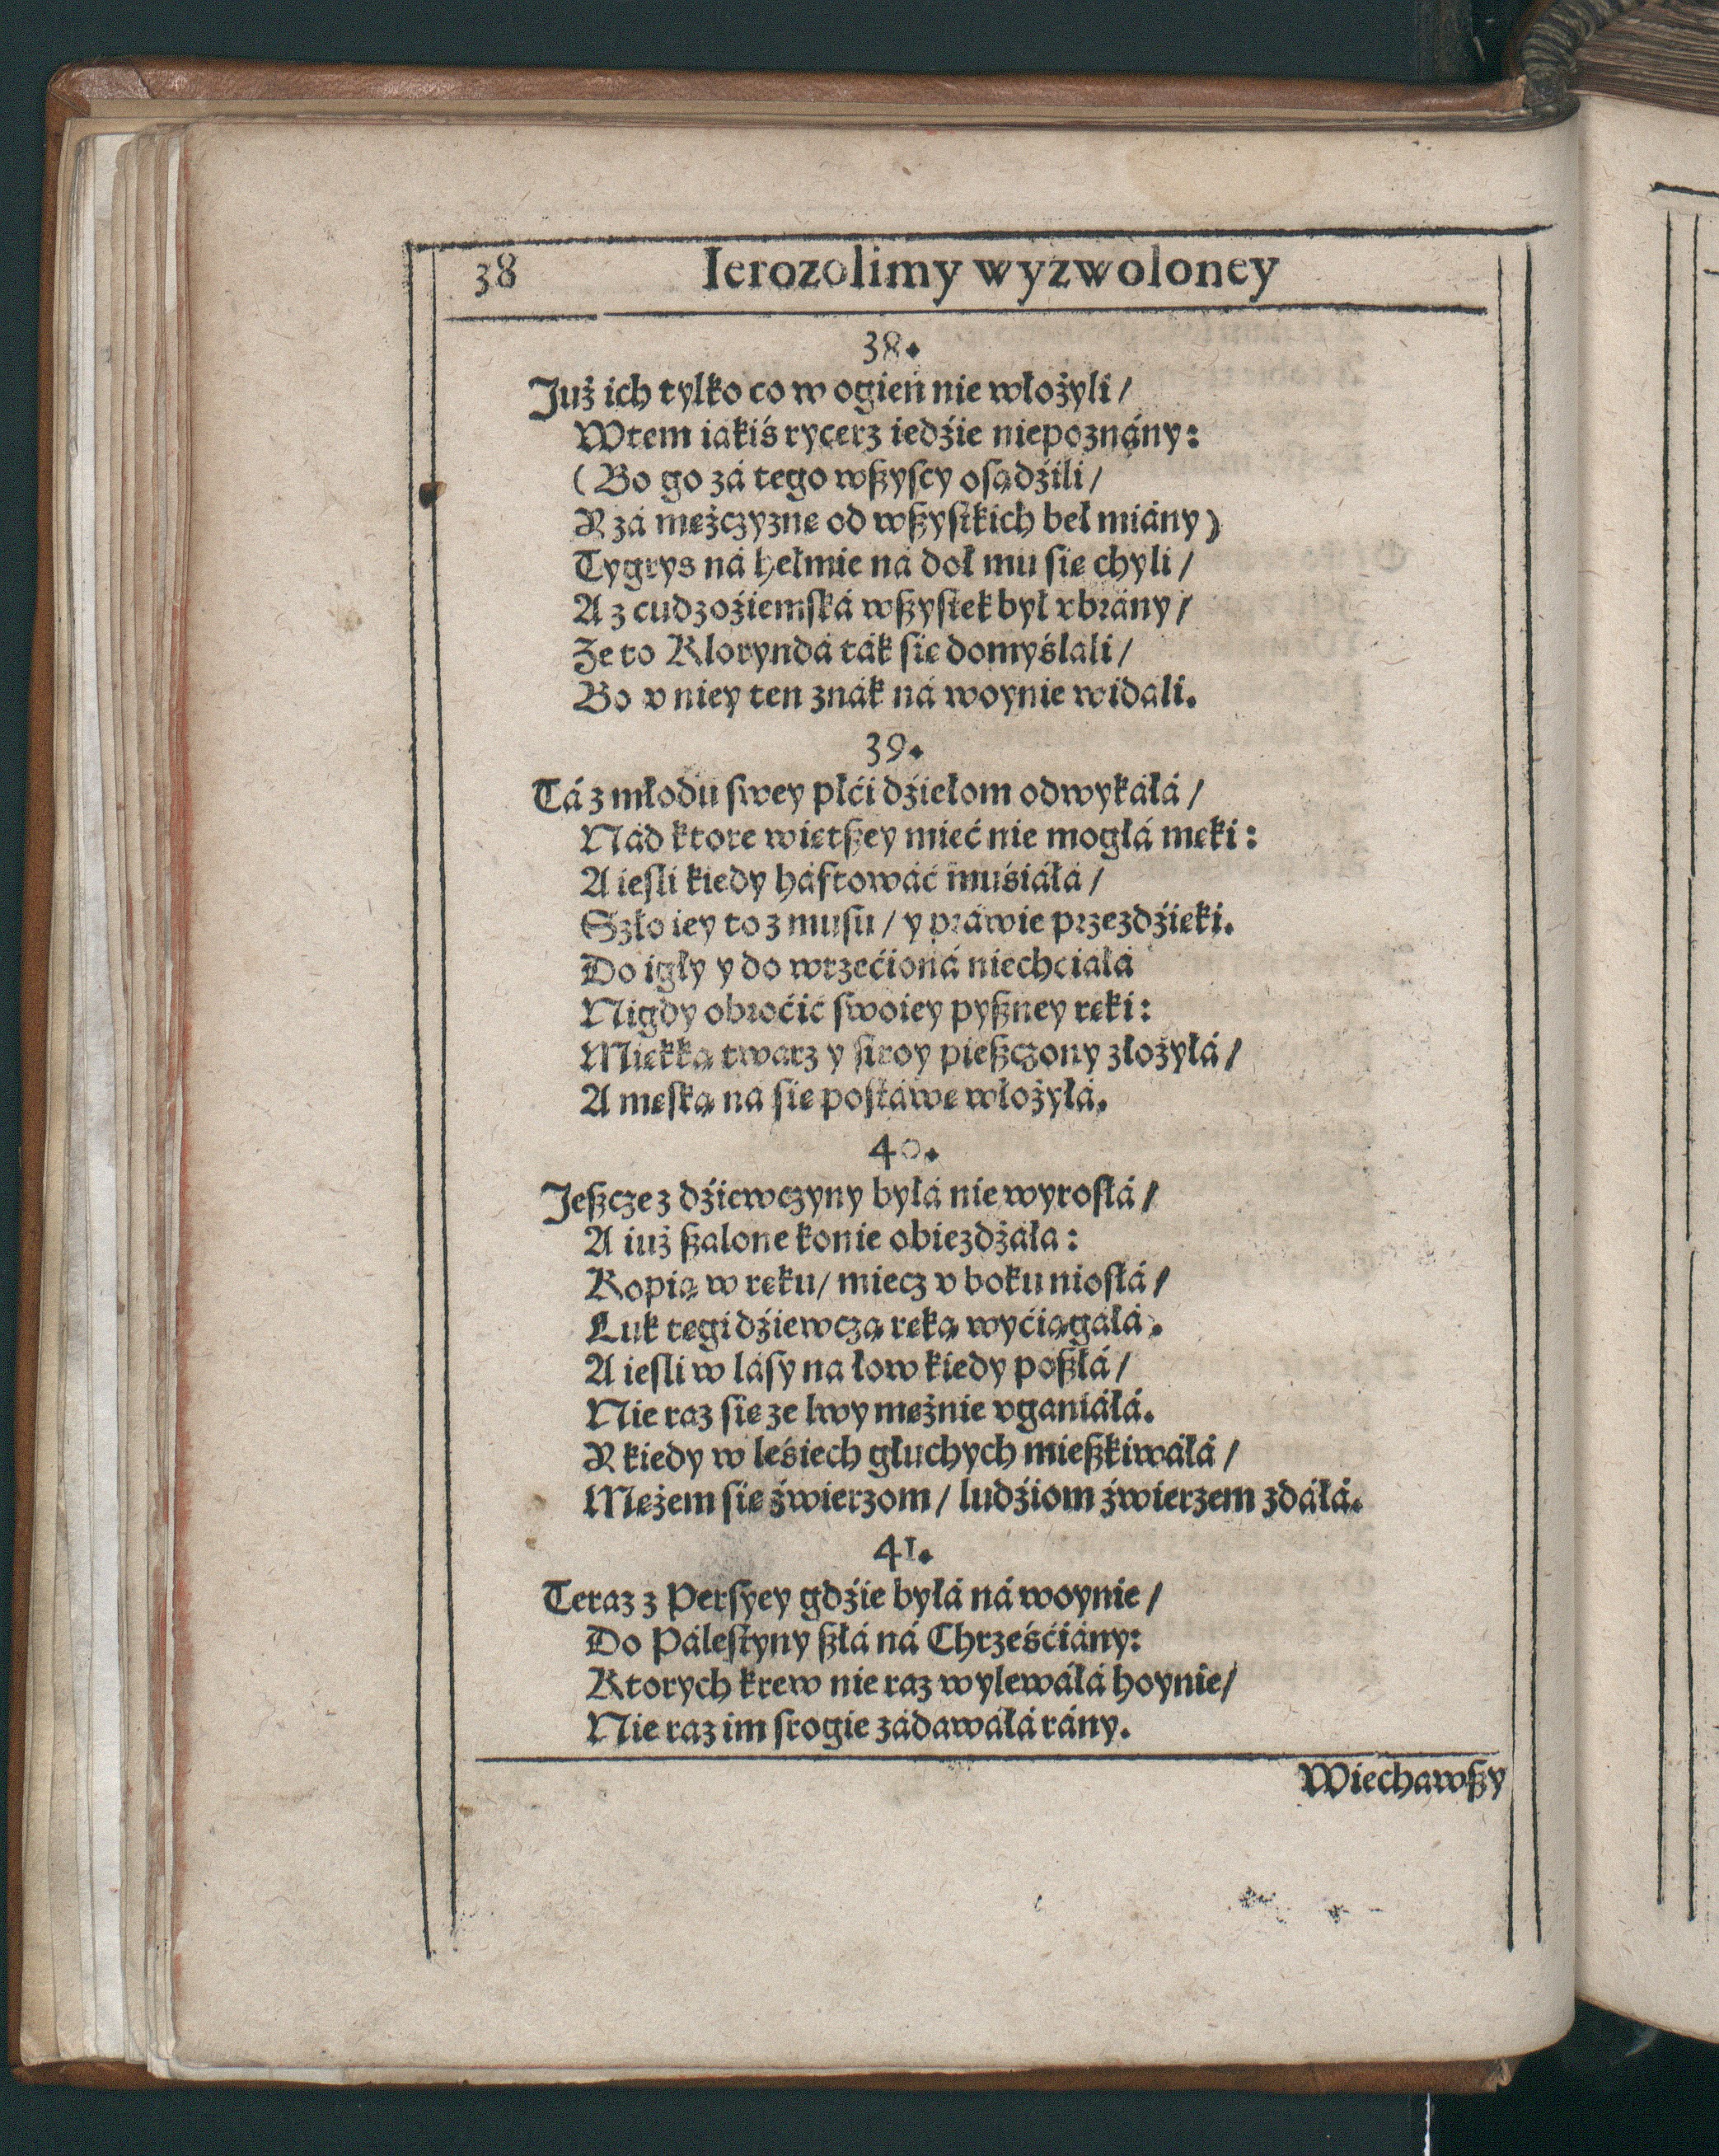 38 Ierozolimy wyzwoloney
38.
Już ich tylko co w ogień nie włożyli/
Wtem iakiś rycerz iedźie niepoznány:
(Bo go zá tego wßyscy osądźili/
A zá mężczyznę od wßystkich beł miány)
Tygrys ná hełmie ná doł mu się chyli/
A z cudzoźiemská wßystek był vbrány/
Ze to Kloryndá ták się domyślali/
Bo v niey ten znák ná woynie widali.
39.
Tá z młodu swey płći dźiełom odwykáłá/
Nád ktore więtßey mieć nie mogłá męki:
A iesli kiedy háftowáć muśiáłá/
Szło iey to z musu/ y práwie przezdźięki.
Do igły y do wrzećioná niechciáłá
Nigdy obroćić swoiey pyßney ręki:
Miękką twarz y stroy pießczony złożyłá/
A męską ná się postáwę włożyłá.
40.
Jeßcze z dźiewczyny byłá nie wyrosłá/
A iuż ßalone konie obiezdżáła:
Kopią w ręku/ miecz v boku niosłá/
Luk tęgi dźiewczą ręką wyćiągáłá.
A iesli w lásy na łow kiedy poßłá/
Nie raz się ze lwy mężnie vgániáłá.
A kiedy w leśiech głuchych mießkiwáłá/
Mężem się źwierzom/ ludźiom źwierzem zdáłá.
41.
Teraz z Persyey gdźie byłá ná woynie/
Do Pálestyny ßłá ná Chrześćiány:
Ktorych krew nie raz wylewáłá hoynie/
Nie raz im srogie zádawáłá rány.
Wiechawßy